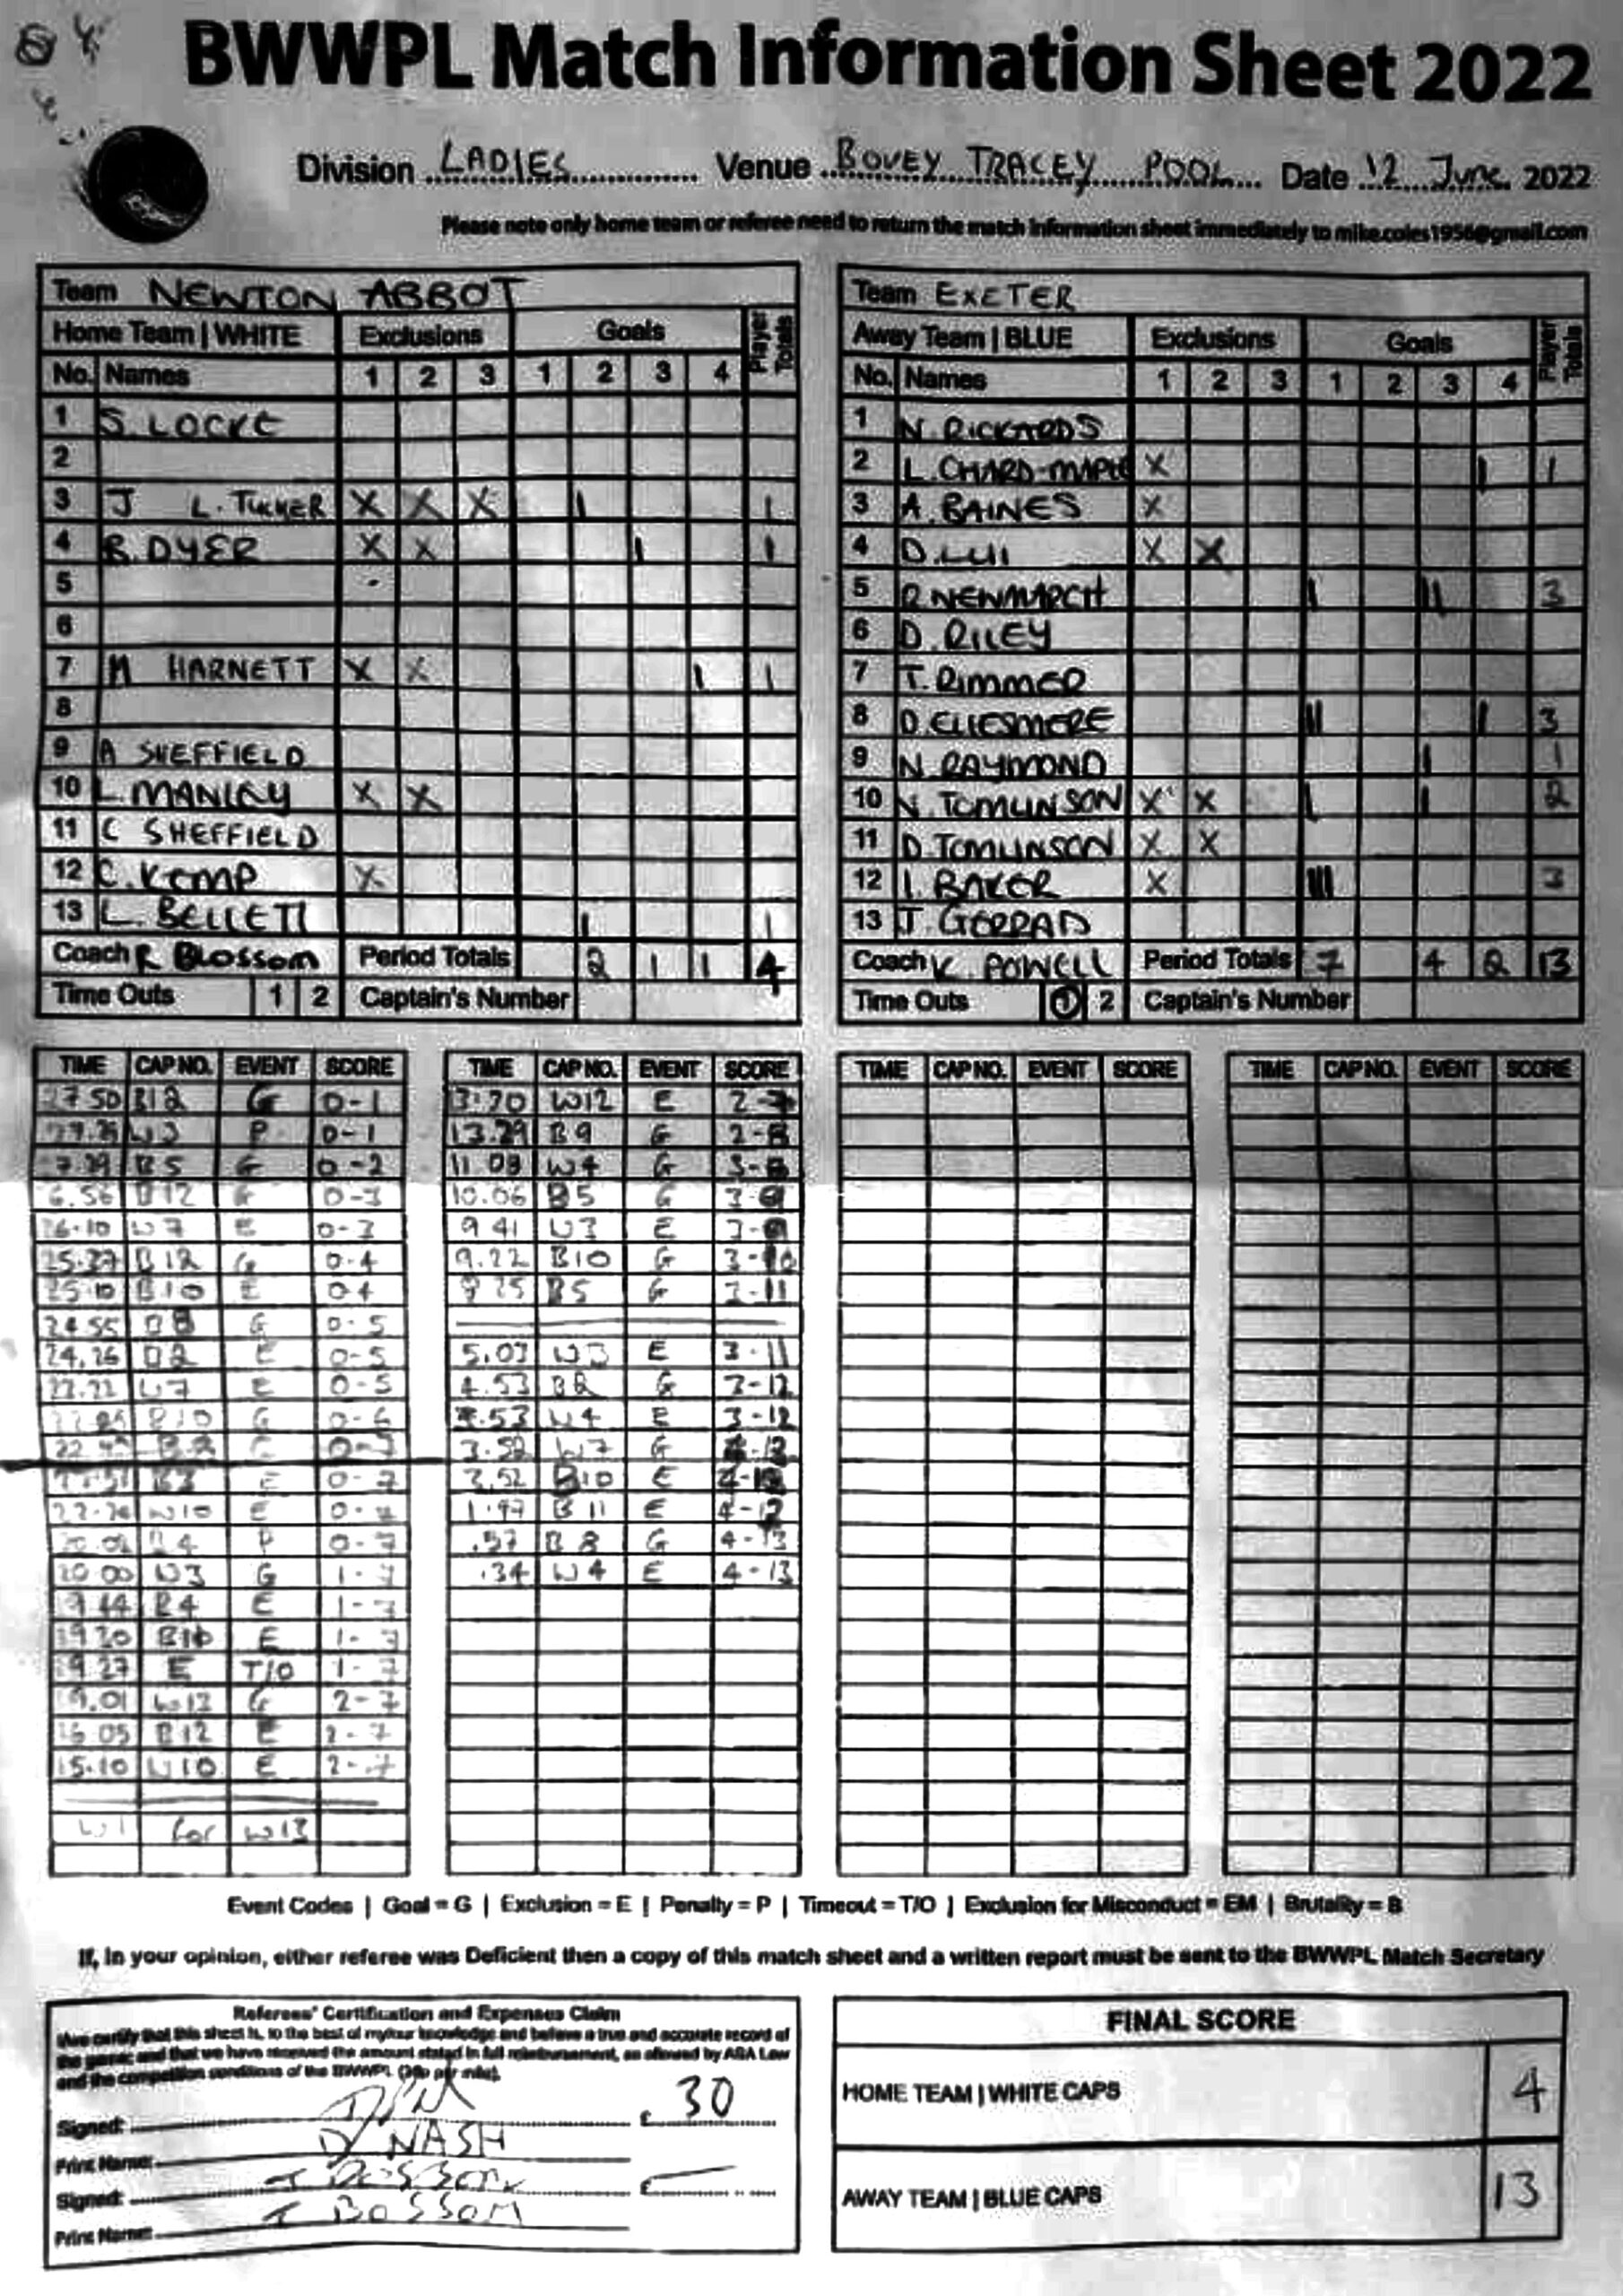 BWWPL Match Information Sheet 2022
Division LADIES Venue BOVEY TRACEY POOL Date 12 June 2022
Please note only home team or referee need to return the match information sheet immediately to mike.coles1956@gmail.com
Team NEWTON ABBOT
Home Team | WHITE Exclusions Goals Player Totals
No. Names 1 2 3 1 2 3 4
1 S. LOCKE
2
3 J L. TUCKER X X X I I
4 B. DYER X X I I
5
6
7 M HARNETT X X I I
8
9 A SHEFFIELD
10 L. MANLEY X X
11 C SHEFFIELD
12 C. KEMP X
13 L. BELLETT I I
Coach R Blossom Period Totals 2 1 1 4
Time Outs 1 2 Captain's Number
Team EXETER
Away Team | BLUE Exclusions Goals Player Totals
No. Names 1 2 3 1 2 3 4
1 N. RICKARDS
2 L. CHARD-MAPLE X I 1
3 A. BAINES X
4 D. LUI X X
5 R. NEWMARCH I II 3
6 D. RILEY
7 T. RIMMER
8 D. ELLESMERE II I 3
9 N. RAYMOND I 1
10 N. TOMLINSON X X I I 2
11 D. TOMLINSON X X
12 I. BAKER X III 3
13 J. GORRAD
Coach K. POWELL Period Totals 7 4 2 13
Time Outs 1 2 Captain's Number
TIME CAP NO. EVENT SCORE
27.50 B12 G 0-1
W3 P 0-1
B5 G 0-2
6.56 B12 G 0-3
26.10 W7 E 0-3
25.37 B12 G 0-4
25.10 B10 E 0-4
24.55 B8 G 0-5
24.26 B2 E 0-5
W7 E 0-5
B10 G 0-6
0-7
B3 E 0-7
W10 E 0-7
B4 P 0-7
20.00 W3 G 1-7
19.44 B4 E 1-7
E 1-7
19.27 E T/O 1-7
19.01 W13 G 2-7
16.05 B12 E 2-7
15.10 W10 E 2-7
W1 for W13
TIME CAP NO. EVENT SCORE
W12 E 2-7
13.29 B9 G 2-8
11.09 W4 G 3-8
10.06 B5 G 3-9
9.41 W3 E 3-9
9.22 B10 G 3-10
B5 G 3-11
5.03 W3 E 3-11
4.53 B2 G 3-12
W4 E 3-12
3.52 W7 G 4-12
3.52 B10 E 4-12
1.47 B11 E 4-12
.57 B8 G 4-13
.34 W4 E 4-13
TIME CAP NO. EVENT SCORE
TIME CAP NO. EVENT SCORE
Event Codes | Goal = G | Exclusion = E | Penalty = P | Timeout = T/O | Exclusion for Misconduct = EM | Brutality = B
If, in your opinion, either referee was Deficient then a copy of this match sheet and a written report must be sent to the BWWPL Match Secretary
Referees' Certification and Expenses Claim
I/we certify that this sheet is, to the best of my/our knowledge and believe a true and accurate record of
the game; and that we have received the amount stated in full reimbursement, as allowed by ASA Law
and the competition conditions of the BWWPL
Signed: £ 30
Print Name: D NASH
Signed: £
Print Name: T BOSSOM
FINAL SCORE
HOME TEAM | WHITE CAPS 4
AWAY TEAM | BLUE CAPS 13